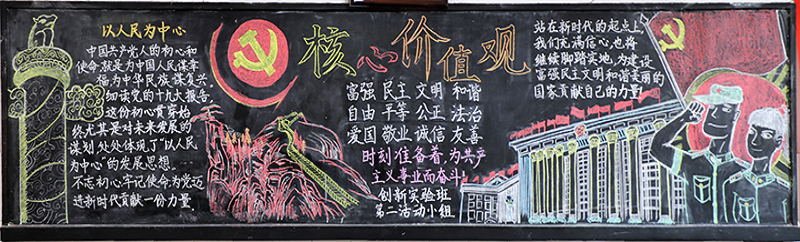 以人民为中心
中国共产党人的初心和
使命,就是为中国人民谋幸
福,为中华民族谋复兴。
细读党的十九大报告,
这份初心贯穿始
终,尤其是对未来发展的
谋划,处处体现了“以人民
为中心”的发展思想。
不忘初心,牢记使命,为党迈
进新时代贡献一份力量
核心价值观
富强 民主 文明 和谐
自由 平等 公正 法治
爱国 敬业 诚信 友善
时刻准备着为共产
主义事业而奋斗!
创新实验班
第二活动小组
站在新时代的起点上,
我们充满信心,也将
继续脚踏实地,为建设
富强民主文明和谐美丽的
国家贡献自己的力量!